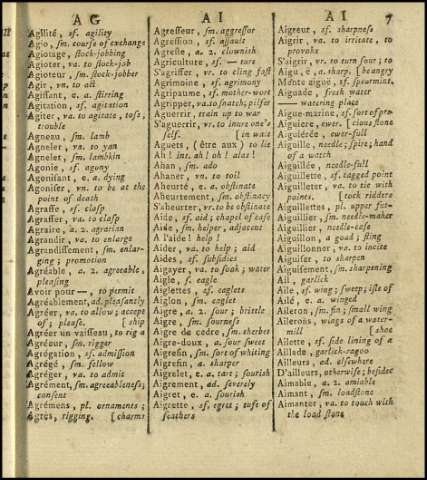 AG
AI
AI
7
Agilité, sf. agility
Agio, sm. course of exchange
Agiotage, stock-jobbing
Agioter, va. to stock-job
Agioteur, sm. stock-jobber
Agir, vn. to act
Agissant, e. a. stirring
Agitation, sf. agitation
Agiter, va. to agitate, toss,
trouble
Agneau, sm. lamb
Agneler, vn. to yan
Agnelet, sm. lambkin
Agonie, sf. agony
Agonisant, e. a. dying
Agoniser, vn. to be at the
point of death
Agraffe, sf. clasp
Agraffer, va. to clasp
Agraire, a. 2. agrarian
Agrandir, va. to enlarge
Agrandissement, sm. enlar-
ging ; promotion
Agréable, a. 2. agreeable,
pleasing
Avoir pour —, to permit
Agréablement, ad. pleasantly
Agréer, va. to allow; accept
of ; please. [ ship
Agréer un vaisseau, to rig a
Agréeur, sm. rigger
Agrégation, sf. admission
Agrégé, sm. fellow
Agréger, va. to admit
Agrément, sm. agreeableness;
consent
Agrémens, pl. ornaments ;
Agrès, rigging. [ charms
Agresseur, sm. aggressor
Agression, sf. assault
Agreste, a. 2. clownish
Agriculture, sf. — ture
S'agriffer, vr. to cling fast
Agrimoine, sf. agrimony
Agripaume, sf. mother-wort
Agripper, va. to snatch; pilfer
Aguerrir, train up to war
S'aguerrir, vr. to inure one's
self. [ in wait
Aguets, (être aux) to lie
Ah ! int. ah ! oh ! alas !
Ahan, sm. ado
Ahaner, vn. to toil
Aheurté, e. a. obstinate
Aheurtement, sm. obstinacy
S'aheurter, vr. to be obstinate
Aide, sf. aid ; chapel of ease
Aide, sm. helper, adjacent
A l'aide ! help !
Aider, va. to help ; aid
Aides, sf. subsidies
Aigayer, va. to soak ; water
Aigle, s. eagle
Aiglettes, sf. eaglets
Aiglon, sm. eaglet
Aigre, a. 2. sour ; brittle
Aigre, sm. sourness
Aigre de cèdre, sm. sherbet
Aigre-doux, a. sour sweet
Aigrefin, sm. sort of whiting
Aigrefin, a. sharper
Aigrelet, e. a. tart ; sourish
Aigrement, ad. severely
Aigret, e. a. sourish
Aigrette, sf. egret ; tuft of
feathers
Aigreur, sf. sharpness
Aigrir, va. to irritate, to
provoke
S'aigrir, vr. to turn sour ; to
Aigu, e. a. sharp. [ be angry
Mente aigüe, sf. spearmint.
Aiguade, fresh water
—— watering place
Aigue-marine, sf. sort of pre-
Aiguière, ewer. [ cious stone
Aiguiérée, ewer-full
Aiguille, needle ; spire ; hand
of a watch
Aiguillée, needle-full
Aiguillette, sf. tagged point
Aiguilleter, va. to tie with
points. [ tock ridders
Aiguillettes, pl. upper fut-
Aiguillier, sm. needle-maker
Aiguillier, needle-case
Aiguillon, a goad ; sting
Aiguillonner, va. to incite
Aiguiser, to sharpen
Aiguisement, sm. sharpening
Ail, garlick
Aile, sf. wing ; sweep ; isle of
Ailé, e. a. winged
Aileron, sm. fin ; small wing
Ailerons, wings of a water-
mill [ shoe
Ailette, sf. side lining of a
Aillade, garlick-ragoo
Ailleurs, ad. elsewhere
D'ailleurs, otherwise ; besides
Aimable, a. 2. amiable
Aimant, sm. loadstone
Aimanter, va. to touch with
the load stone